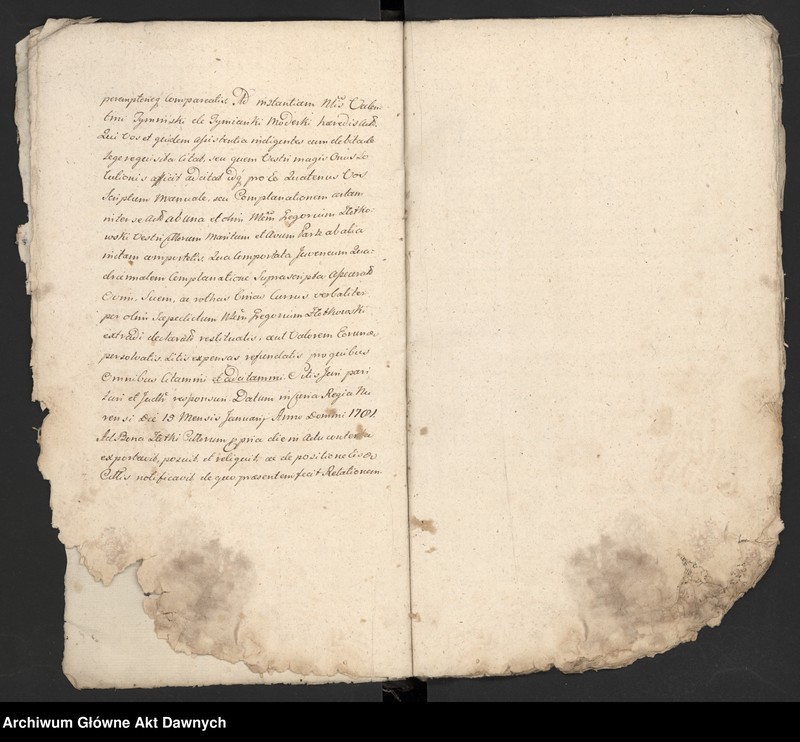 peremptoriej compareatis Ad instantiam Nlis Valen
tini Tyminski de Tymianki Moderki haeredis Actis
Qui Vos et quidem assistentia indigentes cum debita de
Lege requisita citat, seu quem Vestri magis Onus So
lutionis afficit adcitat idq pro Eo Quatenus Vos
Scriptum Manuale, seu Complanationem certam
inter se ab una et olim Gregorium Zlotko
wski Vestri Maritum et Avum Parte ab alia
initam comportetis Qua Comportata Juvencum Qua
drimalem Complanatione Suprascripta
Ovim, Suem, ac rolhas Currus verbaliter
per olim Saepedictum Gregorium Zlotkowski
extradi declaratas restituatis, aut Valorem Eorum
persolvatis. Litis expensas refundatis pro quibus
Omnibus Citammi et adcitammi Sitis Juri pari
turi et responsuri. Datum in Curia Regia Nu
rensi Die 19 Mensis January Anno Domini 1781
Ad Bona Zlotki Cittorum ppria die in Actu contenta
exportavit, posuit, et reliquit ac de positione
Cittis notificavit de quo praesentem fecit Relationem
Archiwum Główne Akt Dawnych